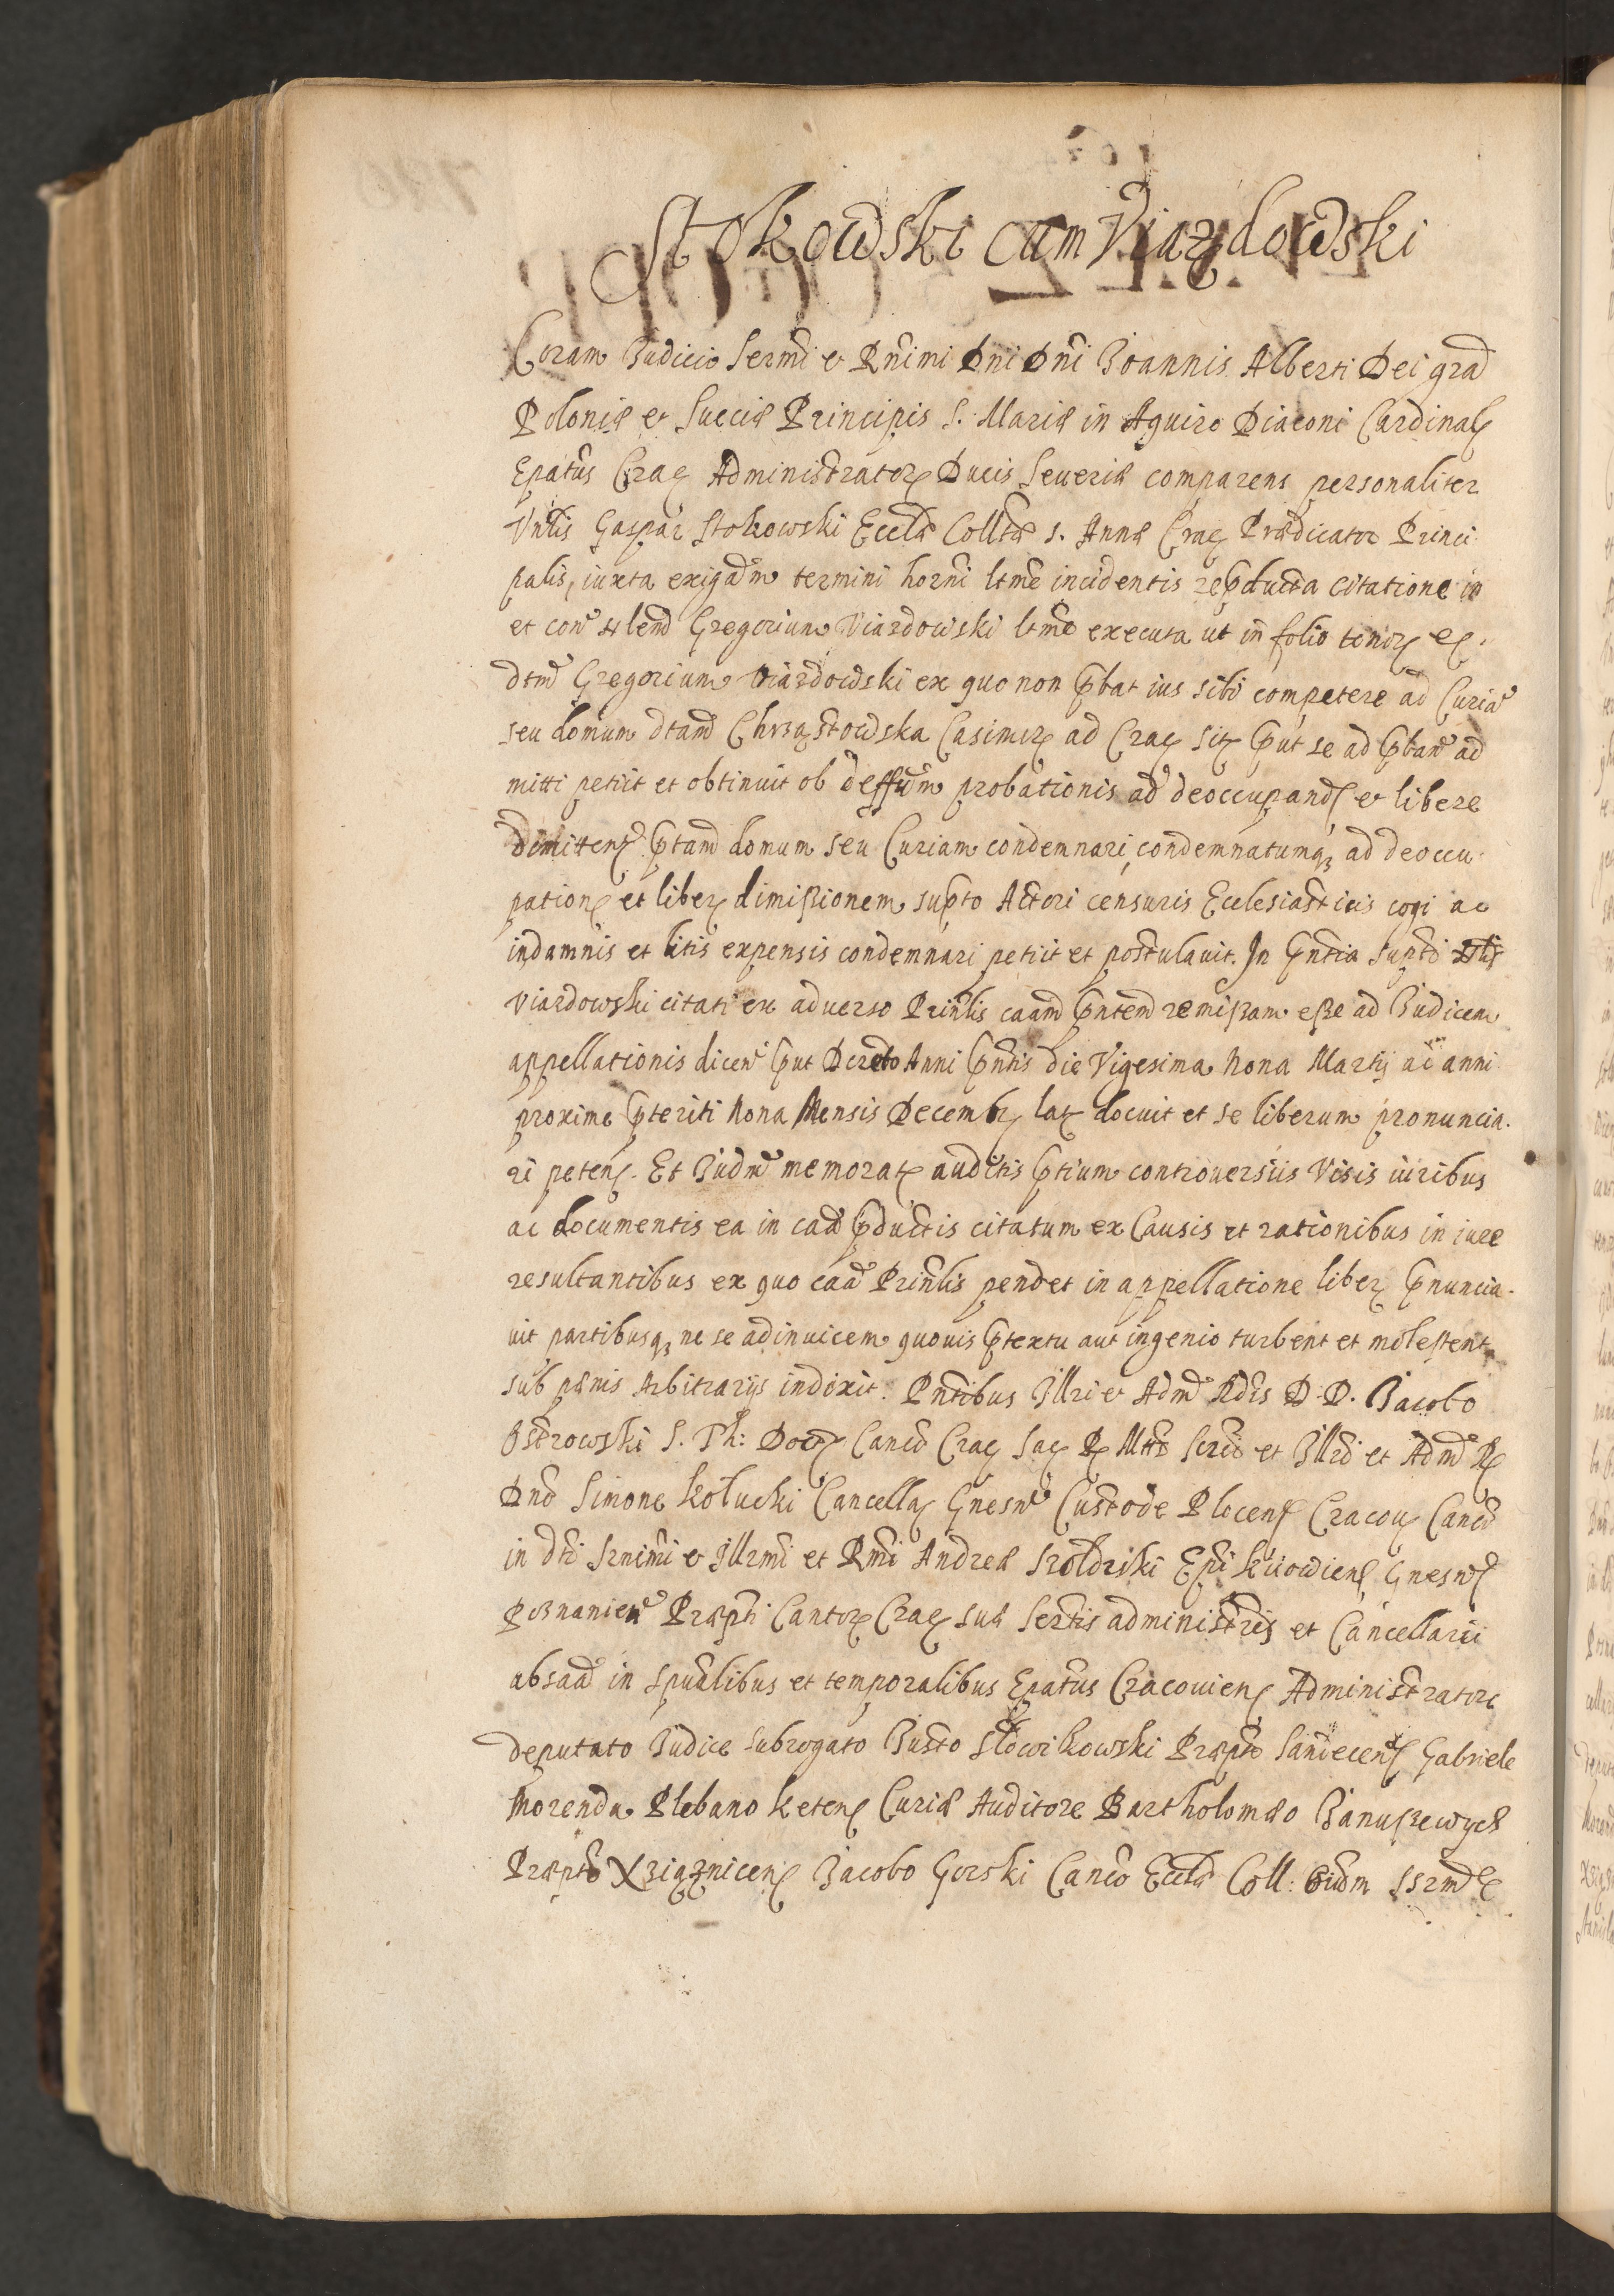 Stokowski cum Viazdowski
Coram Iudicio Sermi et Rnimi Dni Dni Ioannis Alberti Dei grã
Poloniæ et Sueciæ Principis S. Mariæ in Aquiro Diaconi Cardinal
Epatûs Crac Administrator Ducis Seueriæ comparens personaliter
Vnlis Gaspar Stokowski Ecclæ Colltæ S. Annæ Crac Prædicator Princi
palis, iuxta exigãm termini horni ltme incidentis repducta citatione in
et con Gregorium Viazdowski ltme executa ut in folio tenor
dtm Gregorium Viazdowski ex quo non pbat ius sibi competere ad Curiã
seu domum dtam Chrząstowska Casimir ad Crac sit put se ad pban ad
mitti petiit et obtinuit ob deffum probationis ad deoccupand et libere
dimitten ptam domum seu Curiam condemnari, condemnatumq ad deoccu
pation et liber dimißionem supto Actori censuris Ecclesiasticis cogi ac
in damnis et litis expensis condemnari petiit et postulauit. In pntia supti
Viazdowski citati ex aduerso Prinlis caam pntem remißam eße ad Iudicem
appellationis dicen put Decreto Anni pntis die Vigesima Nona Martij ac anni
proxime pteriti Nona Mensis Decemb lat docuit et se liberum pronuncia.
ri peten. Et Iudm memorat auditis ptium controuersiis Visis iuribus
ac documentis ea in caa pductis citatum ex Causis et rationibus in iure
resultantibus ex quo caa Prinlis pendet in appellatione liber pnuncia-
uit partibusq ne se adinuicem quouis ptextu aut ingenio turbent et molestent
sub pænis Arbitrarijs indixit. Pntibus Illri et Adm Rdis D. D. Iacobo
Ostrowski S. Th: Doct Canco Crac Sac R Mtts Scrio et Illri et Adm R
Dno Simone Kołucki Cancella Gnesn Custode Plocens Cracou Canco
in dti Srnimi et Illrmi et Rmi Andreæ Szołdrski Epi Kiiowien Gnesn
Posnanien Præpti Cantor Crac suæ Sertis administris et Cancellarii
absaa in spualibus et temporalibus Epatus Cracouien Administratore
deputato Iudice subrogato Iusto Słowikowski Præpto Sandecens Gabriele
Morenda Plebano Keten Curiæ Auditore Bartholomæo Ianuszewycz
Præpto Xziąznicen Iacobo Gorski Canco Ecclæ Coll: Oium SSrm